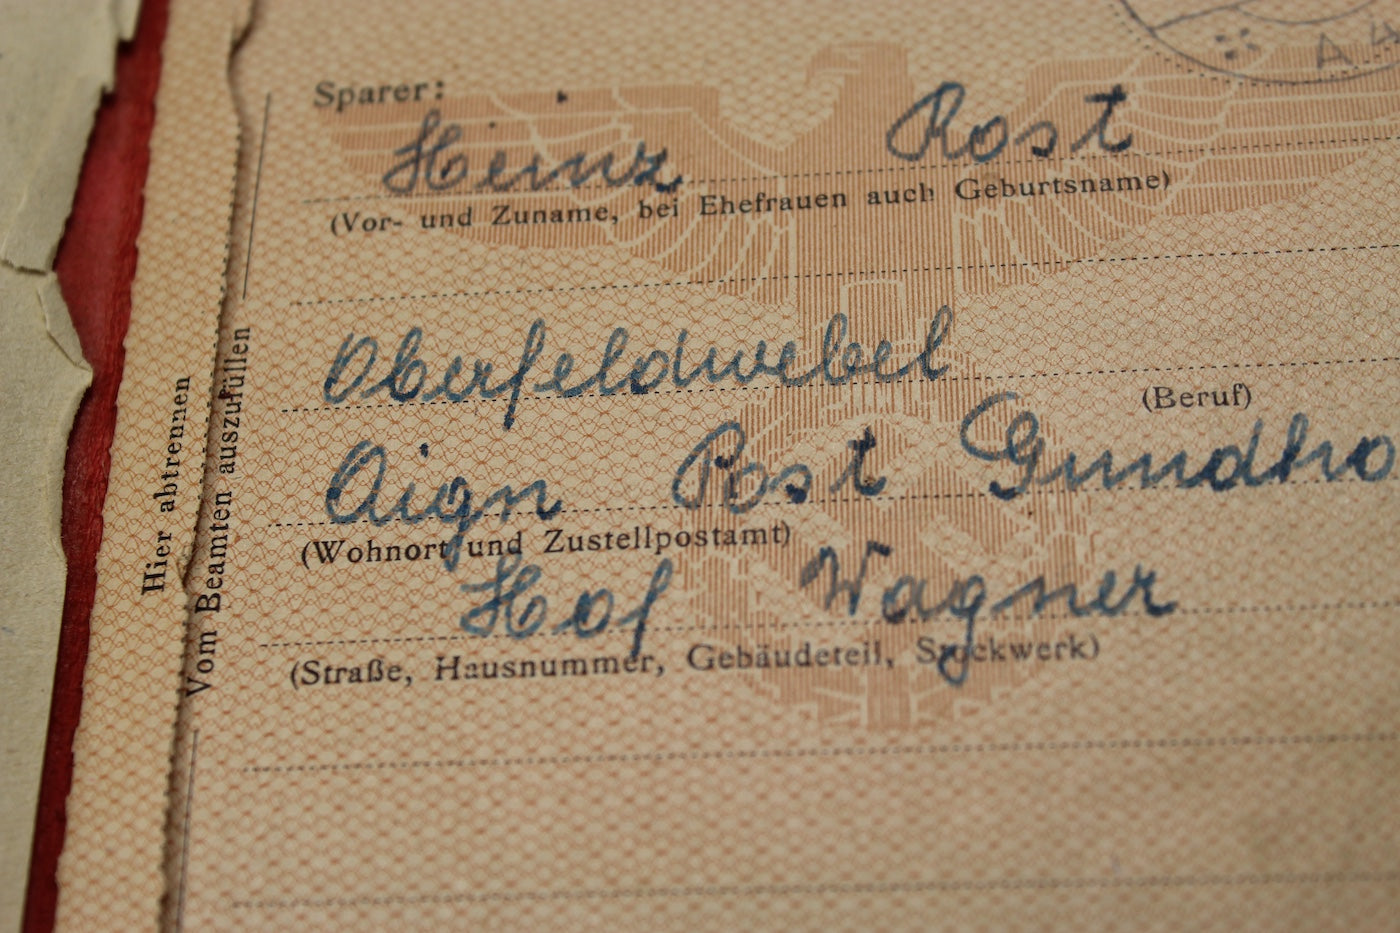 A 4
Sparer:
Heinz Rost
(Vor- und Zuname, bei Ehefrauen auch Geburtsname)
Oberfeldwebel
(Beruf)
Aign Post Gundho
(Wohnort und Zustellpostamt)
Hof Wagner
(Straße, Hausnummer, Gebäudeteil, Stockwerk)
Hier abtrennen
Vom Beamten auszufüllen